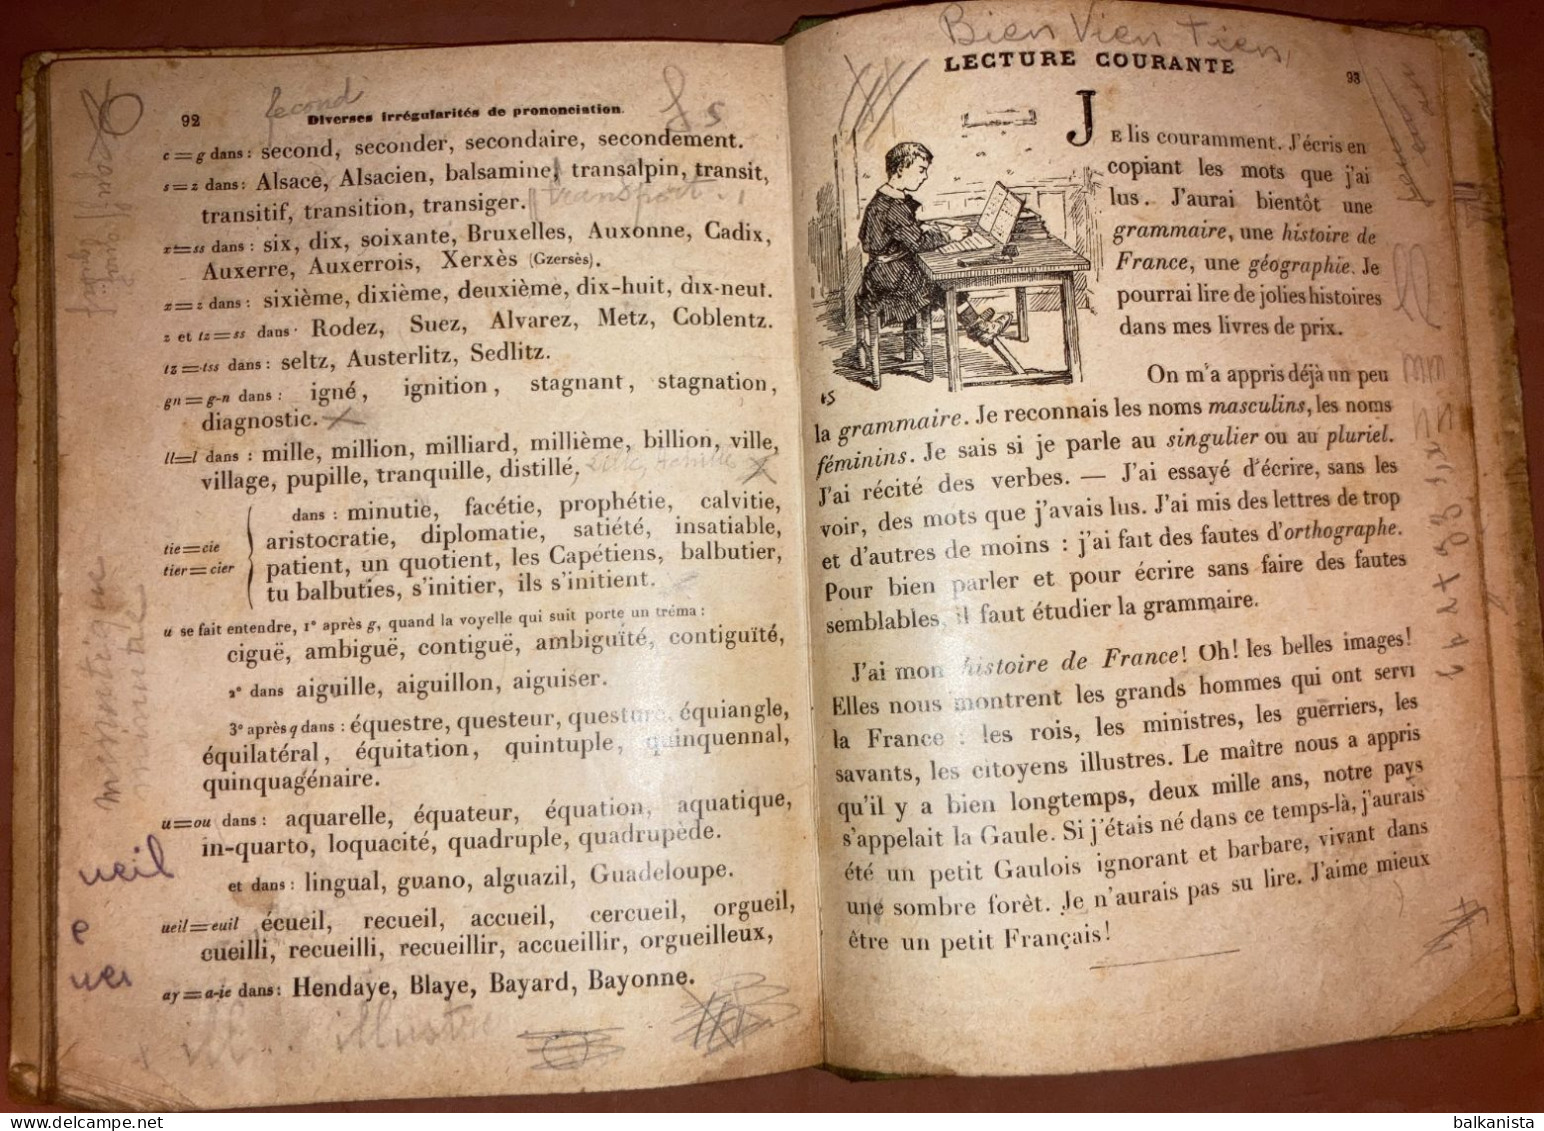 92
second
Diverses irrégularités de prononciation.
c = g dans : second, seconder, secondaire, secondement.
s = z dans : Alsace, Alsacien, balsamine, transalpin, transit,
transitif, transition, transiger. transport
x = ss dans : six, dix, soixante, Bruxelles, Auxonne, Cadix,
Auxerre, Auxerrois, Xerxès (Gzersès).
x = z dans : sixième, dixième, deuxième, dix-huit, dix-neuf.
z et tz = ss dans : Rodez, Suez, Alvarez, Metz, Coblentz.
tz = tss dans : seltz, Austerlitz, Sedlitz.
gn = g-n dans : igné, ignition, stagnant, stagnation,
diagnostic.
ll = l dans : mille, million, milliard, millième, billion, ville,
village, pupille, tranquille, distillé, Lille, Achille
tie = cie
tier = cier
dans : minutie, facétie, prophétie, calvitie,
aristocratie, diplomatie, satiété, insatiable,
patient, un quotient, les Capétiens, balbutier,
tu balbuties, s'initier, ils s'initient.
u se fait entendre, 1° après g, quand la voyelle qui suit porte un tréma :
ciguë, ambiguë, contiguë, ambiguïté, contiguïté,
2° dans aiguille, aiguillon, aiguiser.
3° après q dans : équestre, questeur, questure, équiangle,
équilatéral, équitation, quintuple, quinquennal,
quinquagénaire.
u = ou dans : aquarelle, équateur, équation, aquatique,
in-quarto, loquacité, quadruple, quadrupède.
et dans : lingual, guano, alguazil, Guadeloupe.
ueil = euil écueil, recueil, accueil, cercueil, orgueil,
cueilli, recueilli, recueillir, accueillir, orgueilleux,
ay = a-ie dans : Hendaye, Blaye, Bayard, Bayonne.
ill illustre
ueil
e
uei
Bien Vien Tien
LECTURE COURANTE
93
JE lis couramment. J'écris en
copiant les mots que j'ai
lus. J'aurai bientôt une
grammaire, une histoire de
France, une géographie. Je
pourrai lire de jolies histoires
dans mes livres de prix.
On m'a appris déjà un peu
la grammaire. Je reconnais les noms masculins, les noms
féminins. Je sais si je parle au singulier ou au pluriel.
J'ai récité des verbes. — J'ai essayé d'écrire, sans les
voir, des mots que j'avais lus. J'ai mis des lettres de trop
et d'autres de moins : j'ai fait des fautes d'orthographe.
Pour bien parler et pour écrire sans faire des fautes
semblables, il faut étudier la grammaire.
J'ai mon histoire de France! Oh! les belles images!
Elles nous montrent les grands hommes qui ont servi
la France : les rois, les ministres, les guerriers, les
savants, les citoyens illustres. Le maître nous a appris
qu'il y a bien longtemps, deux mille ans, notre pays
s'appelait la Gaule. Si j'étais né dans ce temps-là, j'aurais
été un petit Gaulois ignorant et barbare, vivant dans
une sombre forêt. Je n'aurais pas su lire. J'aime mieux
être un petit Français!
balkanista